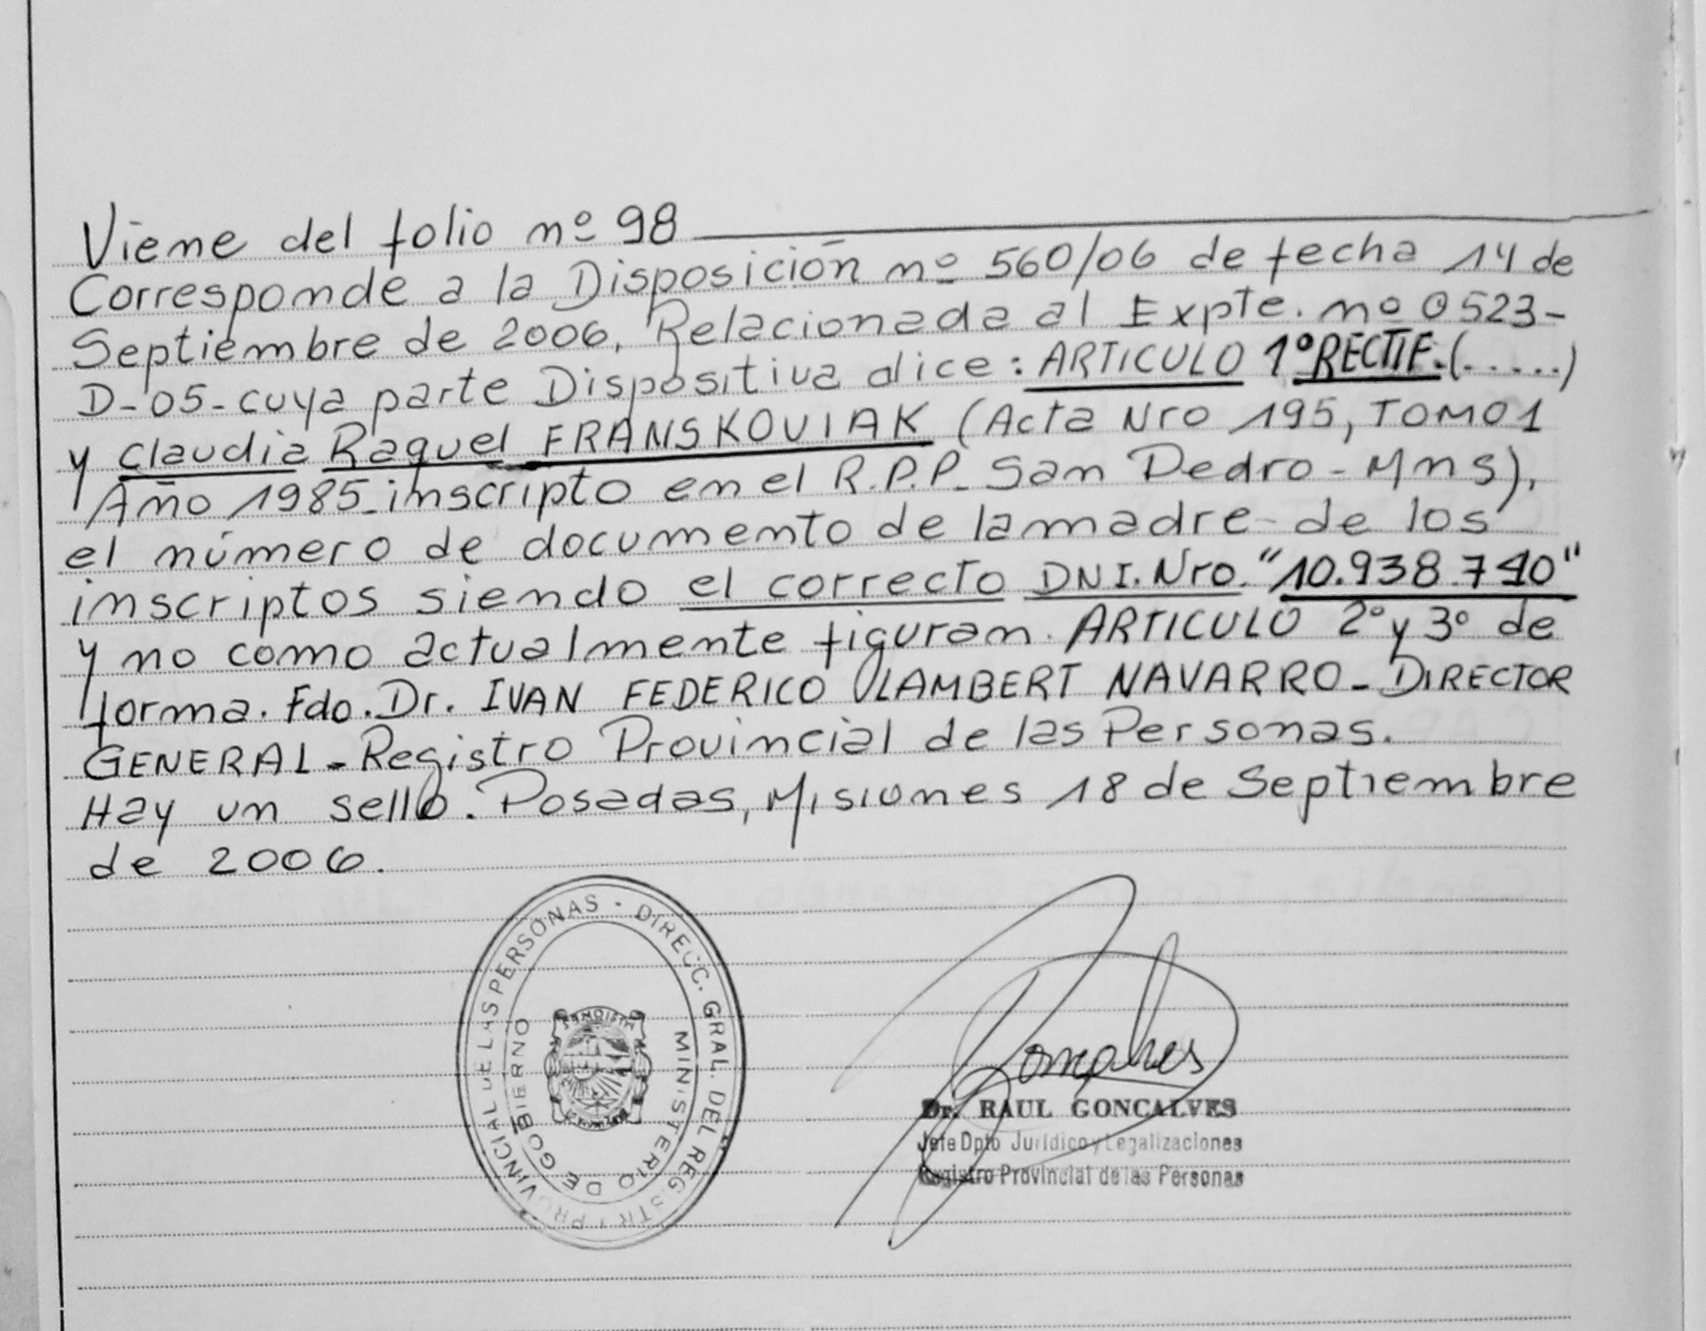 Viene del folio nº 98
Corresponde a la Disposición nº 560/06 de fecha 14 de
Septiembre de 2006, Relacionada al Expte. nº 0523-
D-05-cuya parte Dispositiva dice: ARTICULO 1º RECTIF.(.....)
y Claudia Raquel FRANSKOVIAK (Acta Nro 195, TOMO 1
Año 1985-inscripto en el R.P.P. San Pedro-Mns),
el número de documento de la madre de los
inscriptos siendo el correcto DNI. Nro. "10.938.740"
y no como actualmente figuran. ARTICULO 2º y 3º de
forma. Fdo. Dr. IVAN FEDERICO LAMBERT NAVARRO-DIRECTOR
GENERAL-Registro Provincial de las Personas.
Hay un sello. Posadas, Misiones 18 de Septiembre
de 2006.
DIRECC. GRAL. DEL REGISTR PROVINCIAL DE LAS PERSONAS -
MINISTERIO DE GOBIERNO
Goncalves
Dr. RAUL GONCALVES
Jefe Dpto Jurídico y Legalizaciones
Registro Provincial de las Personas